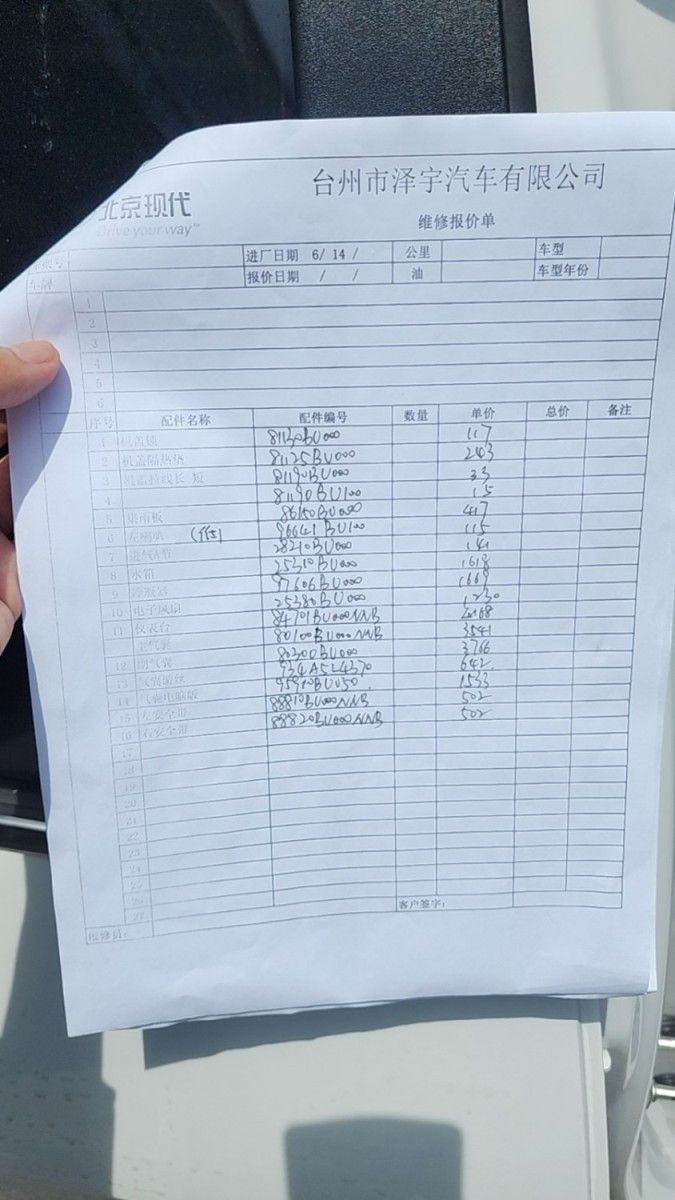 北京现代
Drive your way™
台州市泽宇汽车有限公司
维修报价单
进厂日期 6/ 14 / 公里 车型
报价日期 / / 油 车型年份
1
2
3
4
5
6
序号 配件名称 配件编号 数量 单价 总价 备注
1 机盖锁 81130BU000 117
2 机盖隔热垫 81125BU000 243
3 机盖拉线长 短 81190BU000 33
4 81190BU100 15
5 86150BU000 417
6 左喇叭 96641BU100 115
7 28210BU000 141
8 水箱 25310BU000 1618
9 冷凝器 97606BU000 1669
10 电子风扇 25380BU000 1230
11 仪表台 84701BU000NNB
主气囊 80100BU000NNB 3541
12 副气囊 80300BU000 3766
13 气囊游丝 934A5L4370 642
14 气囊电脑版 95910BU050 1533
15 左安全带 88810BU000NNB 502
16 右安全带 88820BU000NNB 502
17
18
19
20
21
22
23
24
25
26
27 客户签字:
维修员: